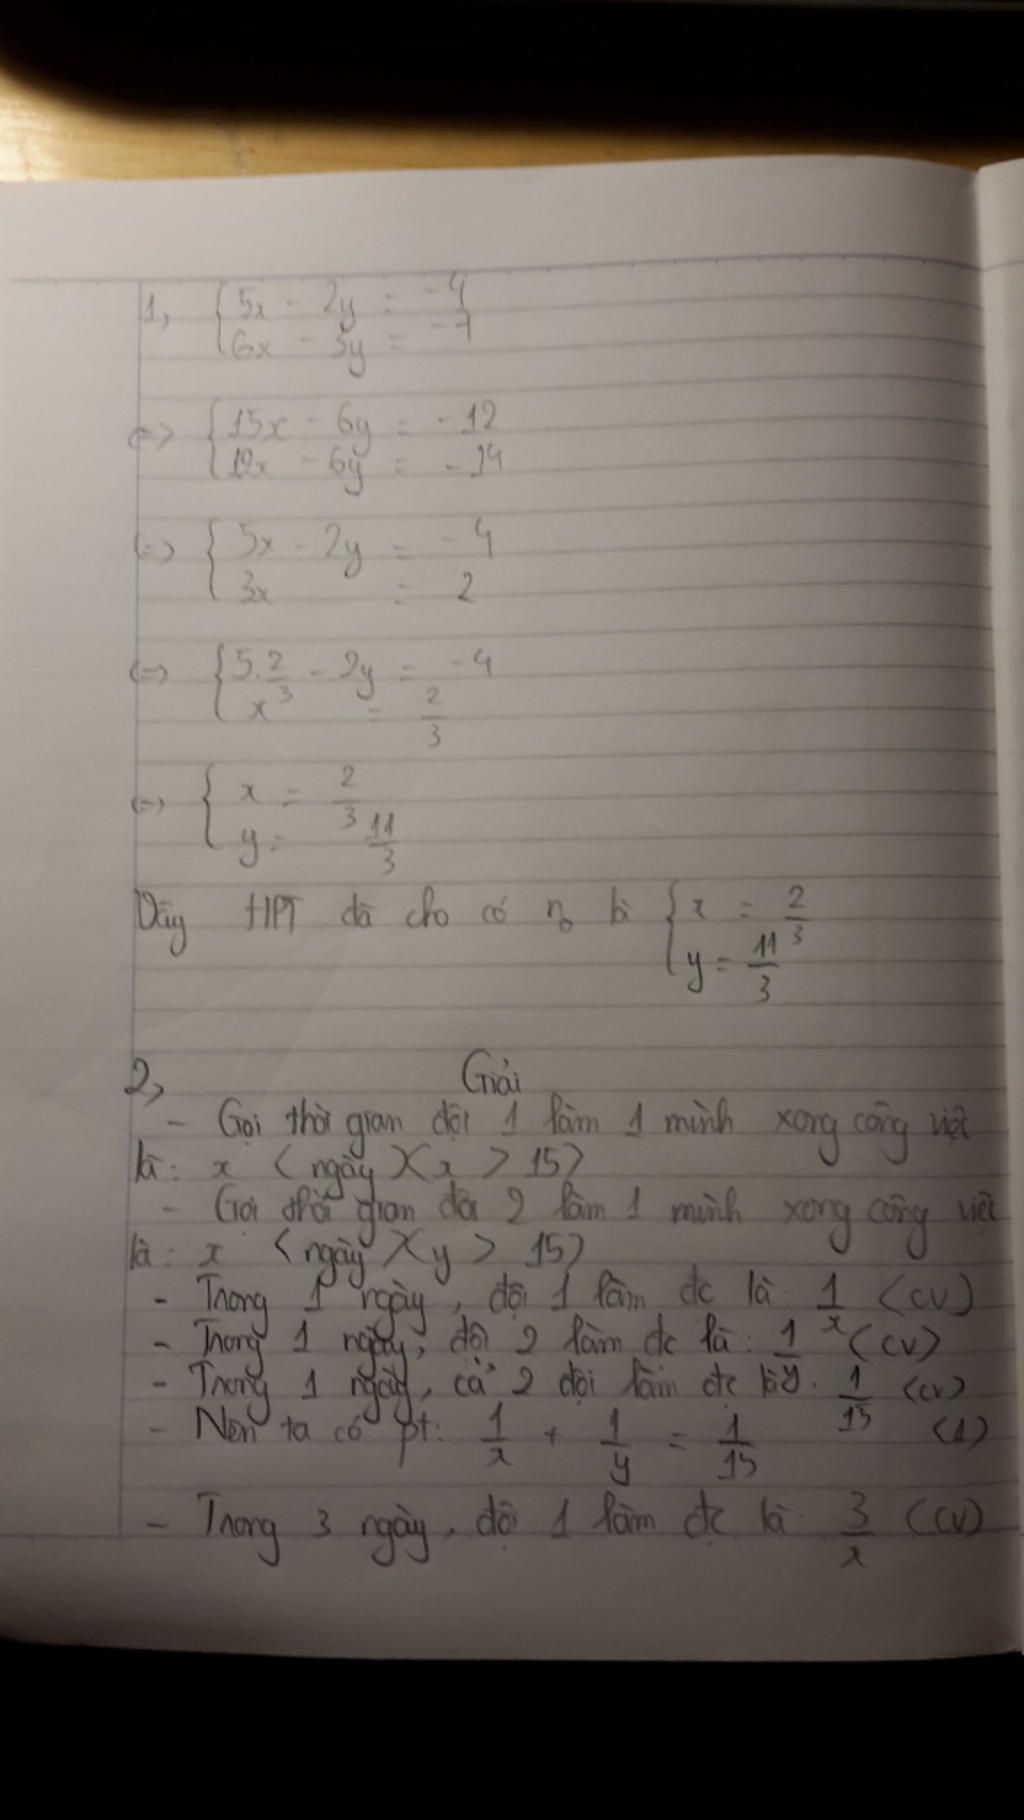 1, { 5x - 2y = -4
6x - 3y = -7
<=> { 15x - 6y = -12
12x - 6y = -14
<=> { 5x - 2y = -4
3x = 2
<=> { 5.2/3 - 2y = -4
x = 2/3
<=> { x = 2/3
y = 11/3
Vậy HPT đã cho có n₀ là { x = 2/3
y = 11/3
2, Giải
- Gọi thời gian đội 1 làm 1 mình xong công việc
là: x (ngày)(x > 15)
- Gọi thời gian đội 2 làm 1 mình xong công việc
là: x (ngày)(y > 15)
- Trong 1 ngày, đội 1 làm đc là: 1/x (cv)
- Trong 1 ngày, đội 2 làm đc là: 1/y (cv)
- Trong 1 ngày, cả 2 đội làm đc là: 1/15 (cv)
- Nên ta có pt: 1/x + 1/y = 1/15 (1)
- Trong 3 ngày, đội 1 làm đc là: 3/x (cv)